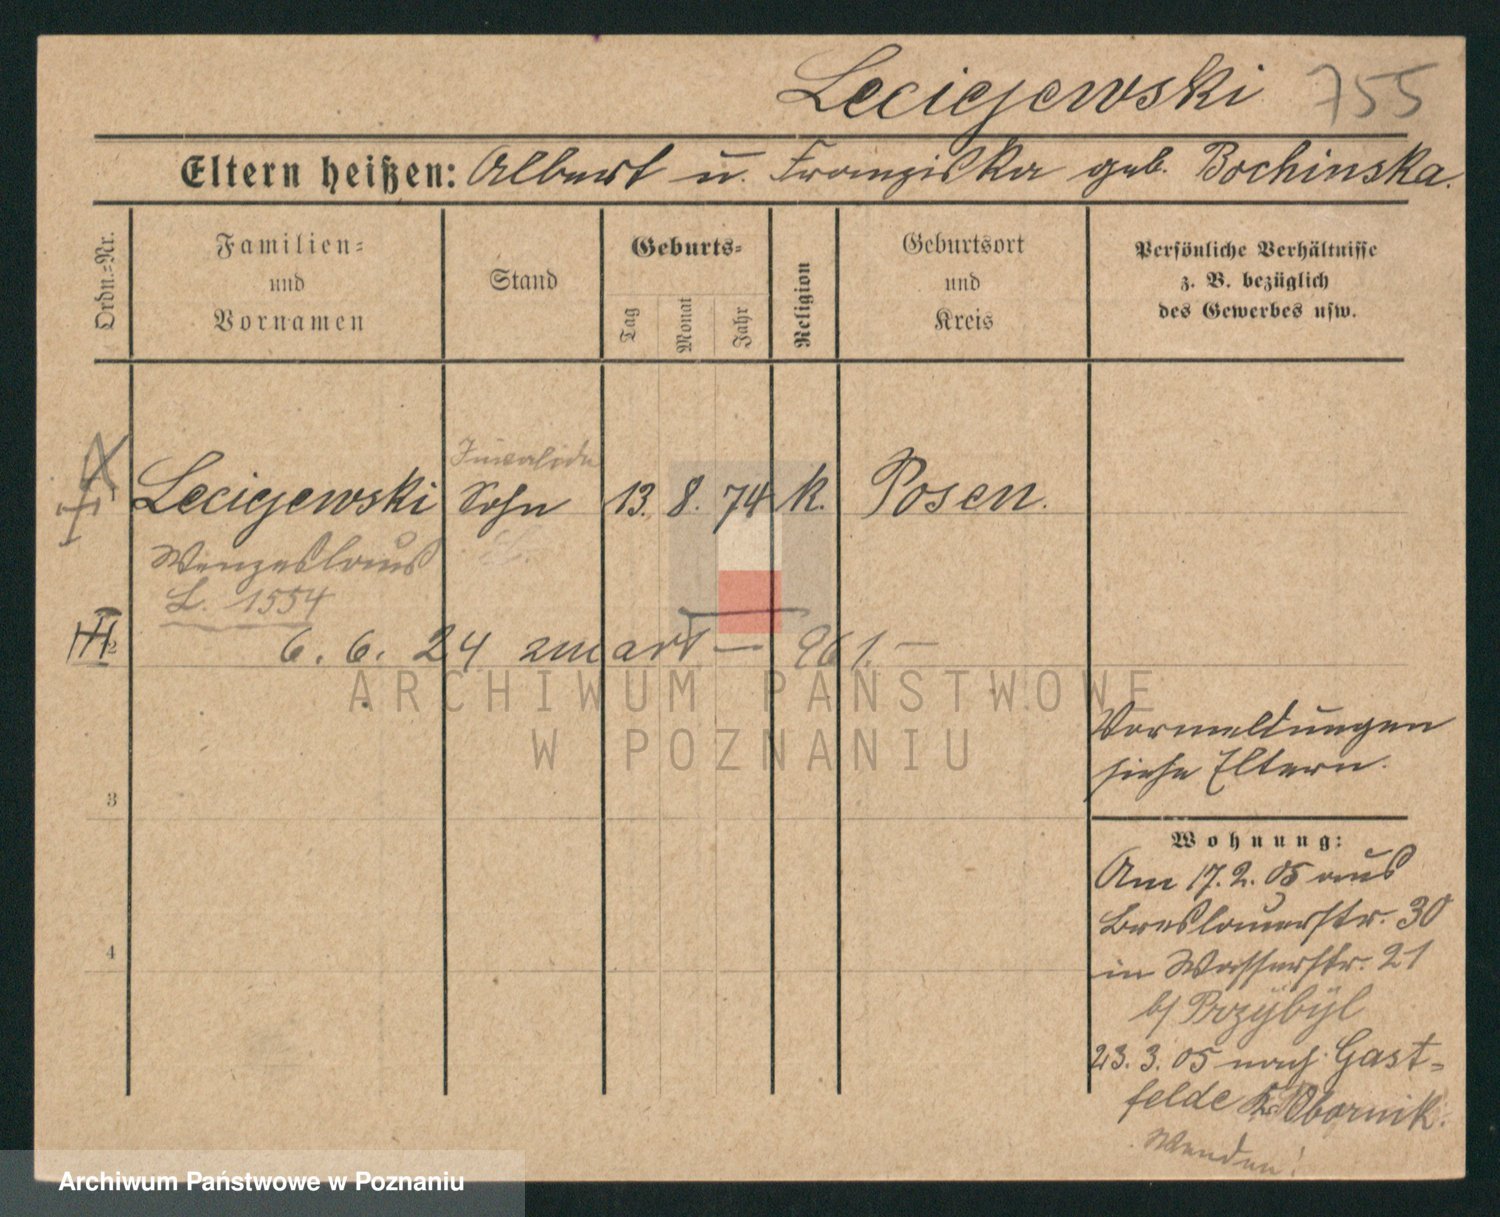 Leciejewski 755
Eltern heißen: Albert u. Franziska geb. Bochinska.
Ordn.-Nr.
Familien-
und
Vornamen
Stand
Geburts-
Tag
Monat
Jahr
Religion
Geburtsort
und
Kreis
Persönliche Verhältnisse
z. B. bezüglich
des Gewerbes usw.
Invalide
Leciejewski Sohn 13. 8. 74 k. Posen.
Wenzeslaus
L. 1554
2
6. 6. 24 zmarł — 961. —
ARCHIWUM PAŃSTWOWE
W POZNANIU
Vormeldungen
siehe Eltern.
3
Wohnung:
Am 17. 2. 05 aus
Breslauerstr. 30
in Wasserstr. 21
b/ Przybyl
23. 3. 05 nach Gast-
felde Kr. Obornik.
Wenden!
4
Archiwum Państwowe w Poznaniu